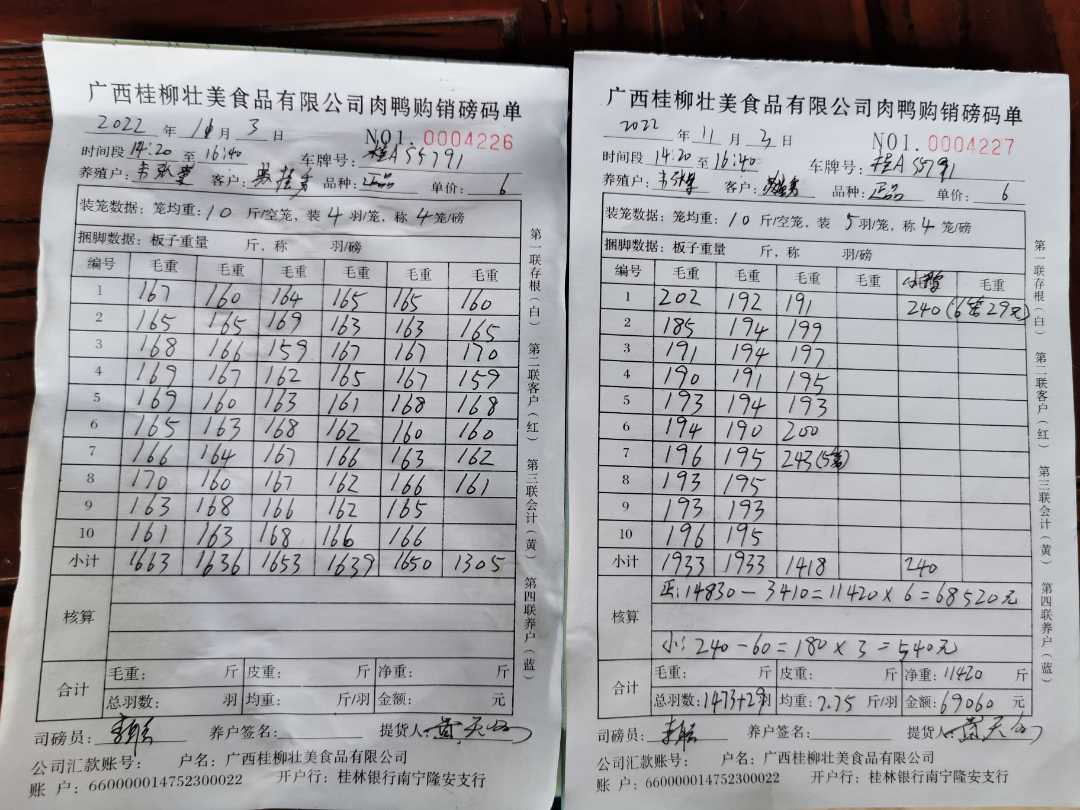 广西桂柳壮美食品有限公司肉鸭购销磅码单
2022 年 11 月 3 日 NO1. 0004226
时间段 14:20 至 16:40 车牌号: 桂A55791
养殖户: 客户: 品种: 正品 单价: 6
装笼数据: 笼均重: 10 斤/空笼, 装 4 羽/笼, 称 4 笼/磅
捆脚数据: 板子重量 斤, 称 羽/磅
编号 毛重 毛重 毛重 毛重 毛重 毛重
1 167 160 164 165 165 160
2 165 165 169 163 163 165
3 168 166 159 167 167 170
4 169 167 162 165 167 159
5 169 160 163 161 168 168
6 165 163 168 162 160 160
7 166 164 167 166 163 162
8 170 160 167 162 166 161
9 163 168 166 162 165
10 161 163 168 166 166
小计 1663 1636 1653 1639 1650 1305
核算
合计 毛重: 斤 皮重: 斤 净重: 斤
总羽数: 羽 均重: 斤/羽 金额: 元
司磅员: 养户签名: 提货人:
公司汇款账号: 户名: 广西桂柳壮美食品有限公司
账 户: 660000014752300022 开户行: 桂林银行南宁隆安支行
第一联存根(白) 第二联客户(红) 第三联会计(黄) 第四联养户(蓝)
广西桂柳壮美食品有限公司肉鸭购销磅码单
2022 年 11 月 3 日 NO1. 0004227
时间段 14:20 至 16:40 车牌号: 桂A55791
养殖户: 客户: 品种: 正品 单价: 6
装笼数据: 笼均重: 10 斤/空笼, 装 5 羽/笼, 称 4 笼/磅
捆脚数据: 板子重量 斤, 称 羽/磅
编号 毛重 毛重 毛重 毛重 小鸭 毛重
1 202 192 191 240 (6笼29只)
2 185 194 199
3 191 194 197
4 190 191 195
5 193 194 193
6 194 190 200
7 196 195 243 (5笼)
8 193 195
9 193 193
10 196 195
小计 1933 1933 1418 240
核算 正: 14830 - 3410 = 11420 × 6 = 68520元
小: 240 - 60 = 180 × 3 = 540元
合计 毛重: 斤 皮重: 斤 净重: 11420 斤
总羽数: 1473+29羽 均重: 7.75 斤/羽 金额: 69060 元
司磅员: 养户签名: 提货人:
公司汇款账号: 户名: 广西桂柳壮美食品有限公司
账 户: 660000014752300022 开户行: 桂林银行南宁隆安支行
第一联存根(白) 第二联客户(红) 第三联会计(黄) 第四联养户(蓝)